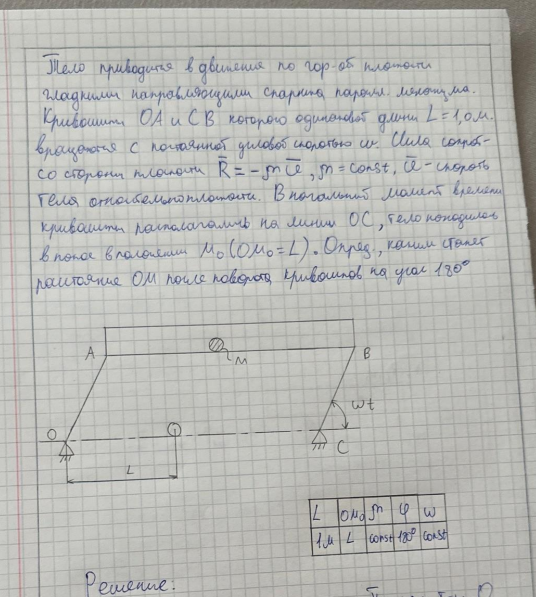 Тело приводится в движение по гор-ой плоскости
гладкими направляющими спарника паралл. механизма.
Кривошипы OA и CB которого одинаковой длины L = 1,0 м.
вращаются с постоянной угловой скоростью ω. Сила сопрот-
со стороны плоскости R̄ = -mū, m = const, ū - скорость
тела относительно плоскости. В начальный момент времени
кривошипы располагались на линии OC, тело находилось
в покое в положении M₀ (OM₀ = L). Опред., каким станет
расстояние OM после поворота кривошипов на угол 180°
A
B
M
O
ωt
C
L
L OM₀ m φ ω
1м L const 180° const
Решение: